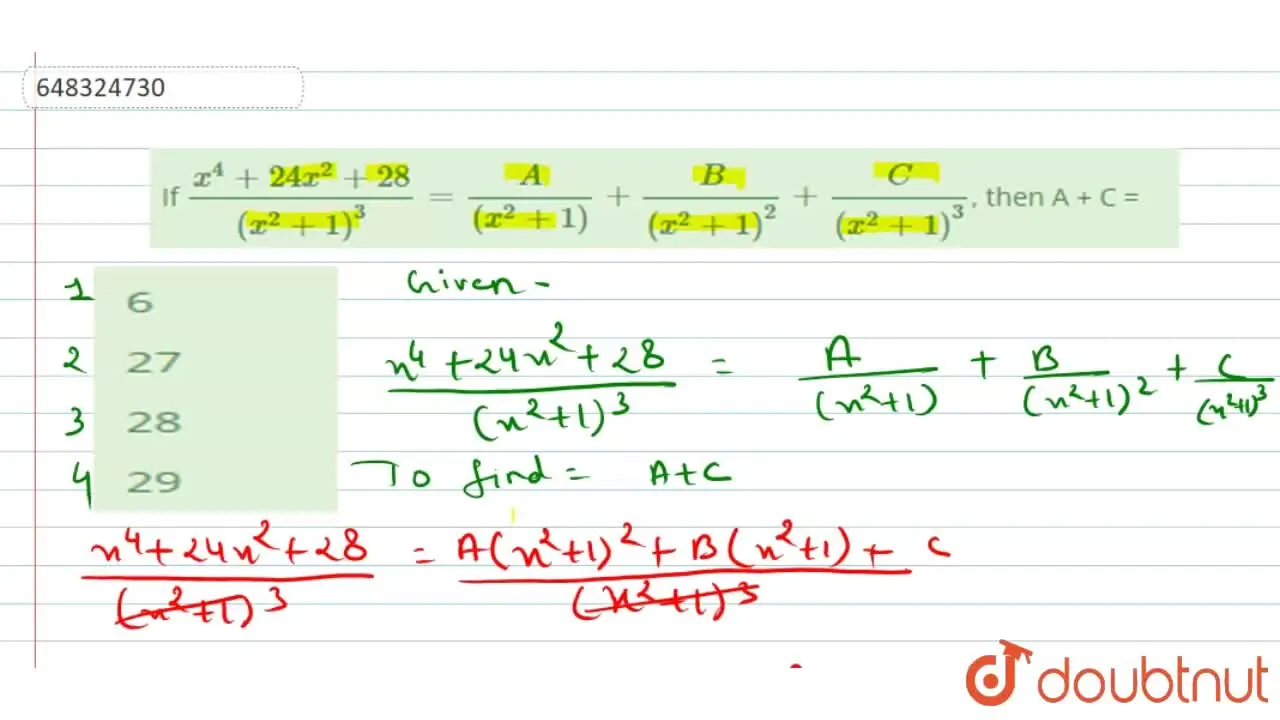 648324730
If (x⁴ + 24x² + 28)/(x² + 1)³ = A/(x² + 1) + B/(x² + 1)² + C/(x² + 1)³, then A + C =
1 6
Given -
2 27
x⁴ + 24x² + 28/(x²+1)³ = A/(x²+1) + B/(x²+1)² + C/(x²+1)³
3 28
4 29
To find = A+C
x⁴ + 24x² + 28/(x²+1)³ = A(x²+1)² + B(x²+1) + C/(x²+1)³
doubtnut